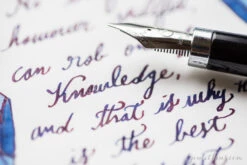 however
can rob
Knowledge,
and that is why
is the best